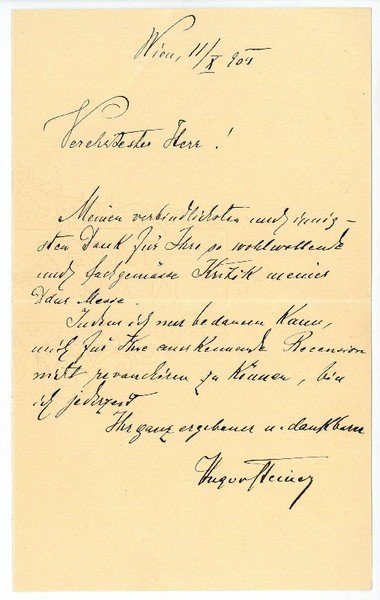 Wien, 11/X 904
Verehrtester Herr!
Meinen verbindlichsten und innig-
sten Dank für Ihre so wohlwollende
und fachgemässe Kritik meiner
Ddur Messe.
Indem ich nur bedauern kann,
mich für Ihre anerkennende Recension
nicht revanchiren zu können, bin
ich jederzeit
Ihr ganz ergebener u. dankbarer